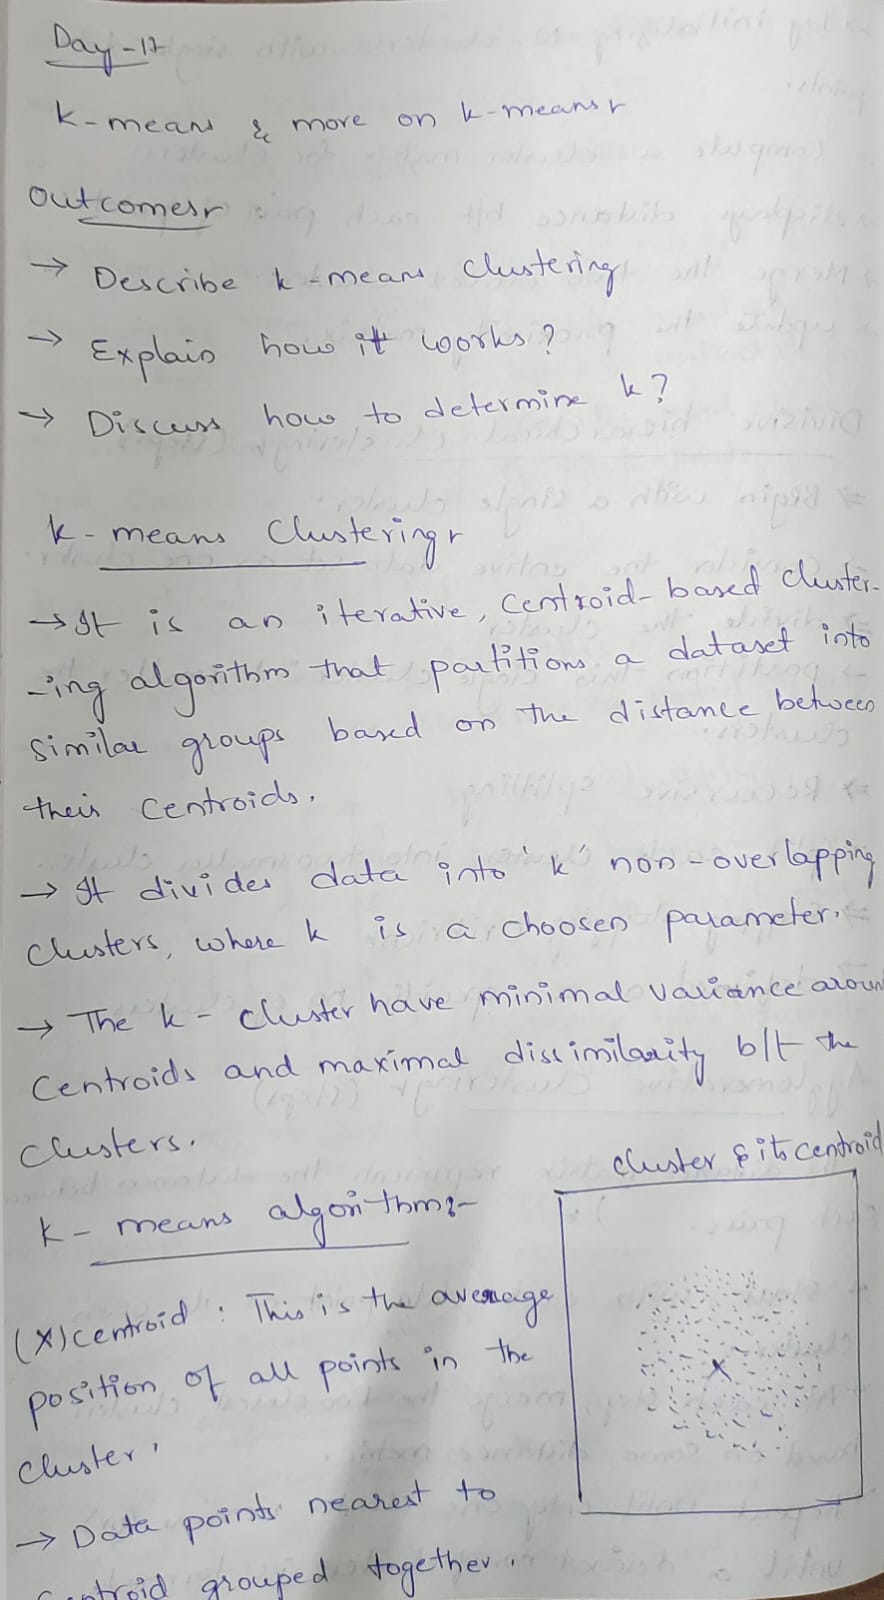 Day-17
K-means & more on k-means
Outcomes
→ Describe k-means clustering
→ Explain how it works?
→ Discuss how to determine k?
k-means Clustering
→ It is an iterative, Centroid-based Cluster-
-ing algorithm that partitions a dataset into
similar groups based on the distance between
their Centroids.
→ It divides data into 'k' non-overlapping
Clusters, where k is a choosen parameter.
→ The k-cluster have minimal variance aroun
Centroids and maximal dissimilarity b/t the
Clusters.
Cluster & its centroid
K-means algorithm:-
(X) centroid : This is the average
position of all points in the
Cluster,
X
→ Data points nearest to
Centroid grouped together.